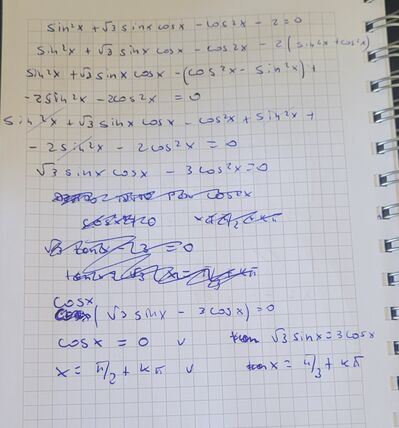 sin²x + √3 sinx cosx - cos2x - 2 = 0
sin²x + √3 sinx cosx - cos2x - 2(sin²x + cos²x)
sin²x + √3 sinx cosx - (cos²x - sin²x) +
-2sin²x - 2cos²x = 0
sin²x + √3 sinx cosx - cos²x + sin²x +
- 2sin²x - 2cos²x = 0
√3 sinx cosx - 3cos²x = 0
cosx
(√3 sinx - 3cosx) = 0
cosx = 0 v √3 sinx = 3cosx
x = π/2 + kπ v x = π/3 + kπ